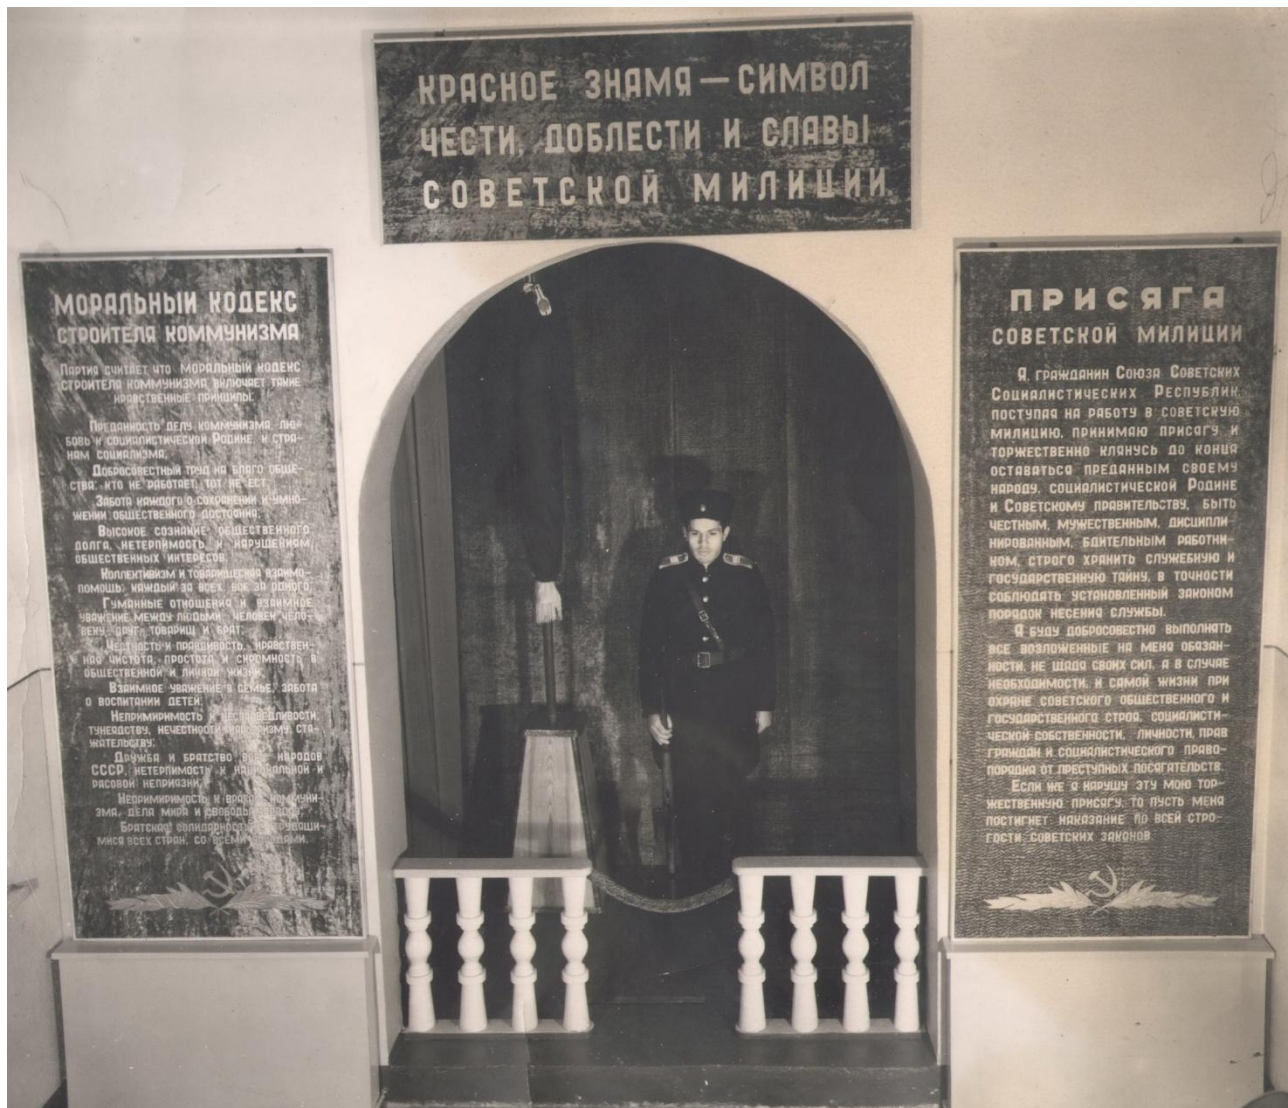 КРАСНОЕ ЗНАМЯ — СИМВОЛ
ЧЕСТИ, ДОБЛЕСТИ И СЛАВЫ
СОВЕТСКОЙ МИЛИЦИИ
МОРАЛЬНЫЙ КОДЕКС
СТРОИТЕЛЯ КОММУНИЗМА
ПАРТИЯ СЧИТАЕТ ЧТО МОРАЛЬНЫЙ КОДЕКС
СТРОИТЕЛЯ КОММУНИЗМА ВКЛЮЧАЕТ ТАКИЕ
НРАВСТВЕННЫЕ ПРИНЦИПЫ:
ПРЕДАННОСТЬ ДЕЛУ КОММУНИЗМА, ЛЮ-
БОВЬ К СОЦИАЛИСТИЧЕСКОЙ РОДИНЕ, К СТРА-
НАМ СОЦИАЛИЗМА;
ДОБРОСОВЕСТНЫЙ ТРУД НА БЛАГО ОБЩЕ-
СТВА: КТО НЕ РАБОТАЕТ, ТОТ НЕ ЕСТ;
ЗАБОТА КАЖДОГО О СОХРАНЕНИИ И УМНО-
ЖЕНИИ ОБЩЕСТВЕННОГО ДОСТОЯНИЯ;
ВЫСОКОЕ СОЗНАНИЕ ОБЩЕСТВЕННОГО
ДОЛГА, НЕТЕРПИМОСТЬ К НАРУШЕНИЯМ
ОБЩЕСТВЕННЫХ ИНТЕРЕСОВ;
КОЛЛЕКТИВИЗМ И ТОВАРИЩЕСКАЯ ВЗАИМО-
ПОМОЩЬ: КАЖДЫЙ ЗА ВСЕХ, ВСЕ ЗА ОДНОГО;
ГУМАННЫЕ ОТНОШЕНИЯ И ВЗАИМНОЕ
УВАЖЕНИЕ МЕЖДУ ЛЮДЬМИ: ЧЕЛОВЕК ЧЕЛО-
ВЕКУ ДРУГ, ТОВАРИЩ И БРАТ;
ЧЕСТНОСТЬ И ПРАВДИВОСТЬ, НРАВСТВЕН-
НАЯ ЧИСТОТА, ПРОСТОТА И СКРОМНОСТЬ В
ОБЩЕСТВЕННОЙ И ЛИЧНОЙ ЖИЗНИ;
ВЗАИМНОЕ УВАЖЕНИЕ В СЕМЬЕ, ЗАБОТА
О ВОСПИТАНИИ ДЕТЕЙ;
НЕПРИМИРИМОСТЬ К НЕСПРАВЕДЛИВОСТИ,
ТУНЕЯДСТВУ, НЕЧЕСТНОСТИ, КАРЬЕРИЗМУ, СТЯ-
ЖАТЕЛЬСТВУ;
ДРУЖБА И БРАТСТВО ВСЕХ НАРОДОВ
СССР, НЕТЕРПИМОСТЬ К НАЦИОНАЛЬНОЙ И
РАСОВОЙ НЕПРИЯЗНИ;
НЕПРИМИРИМОСТЬ К ВРАГАМ КОММУНИ-
ЗМА, ДЕЛА МИРА И СВОБОДЫ
БРАТСКАЯ СОЛИДАРНОСТЬ С ТРУДЯЩИ-
МИСЯ ВСЕХ СТРАН, СО ВСЕМИ
ПРИСЯГА
СОВЕТСКОЙ МИЛИЦИИ
Я, ГРАЖДАНИН СОЮЗА СОВЕТСКИХ
СОЦИАЛИСТИЧЕСКИХ РЕСПУБЛИК,
ПОСТУПАЯ НА РАБОТУ В СОВЕТСКУЮ
МИЛИЦИЮ, ПРИНИМАЮ ПРИСЯГУ И
ТОРЖЕСТВЕННО КЛЯНУСЬ ДО КОНЦА
ОСТАВАТЬСЯ ПРЕДАННЫМ СВОЕМУ
НАРОДУ, СОЦИАЛИСТИЧЕСКОЙ РОДИНЕ
И СОВЕТСКОМУ ПРАВИТЕЛЬСТВУ, БЫТЬ
ЧЕСТНЫМ, МУЖЕСТВЕННЫМ, ДИСЦИПЛИ-
НИРОВАННЫМ, БДИТЕЛЬНЫМ РАБОТНИ-
КОМ, СТРОГО ХРАНИТЬ СЛУЖЕБНУЮ И
ГОСУДАРСТВЕННУЮ ТАЙНУ, В ТОЧНОСТИ
СОБЛЮДАТЬ УСТАНОВЛЕННЫЙ ЗАКОНОМ
ПОРЯДОК НЕСЕНИЯ СЛУЖБЫ.
Я БУДУ ДОБРОСОВЕСТНО ВЫПОЛНЯТЬ
ВСЕ ВОЗЛОЖЕННЫЕ НА МЕНЯ ОБЯЗАН-
НОСТИ, НЕ ЩАДЯ СВОИХ СИЛ, А В СЛУЧАЕ
НЕОБХОДИМОСТИ, И САМОЙ ЖИЗНИ ПРИ
ОХРАНЕ СОВЕТСКОГО ОБЩЕСТВЕННОГО И
ГОСУДАРСТВЕННОГО СТРОЯ, СОЦИАЛИСТИ-
ЧЕСКОЙ СОБСТВЕННОСТИ, ЛИЧНОСТИ, ПРАВ
ГРАЖДАН И СОЦИАЛИСТИЧЕСКОГО ПРАВО-
ПОРЯДКА ОТ ПРЕСТУПНЫХ ПОСЯГАТЕЛЬСТВ.
ЕСЛИ ЖЕ Я НАРУШУ ЭТУ МОЮ ТОР-
ЖЕСТВЕННУЮ ПРИСЯГУ, ТО ПУСТЬ МЕНЯ
ПОСТИГНЕТ НАКАЗАНИЕ ПО ВСЕЙ СТРО-
ГОСТИ СОВЕТСКИХ ЗАКОНОВ